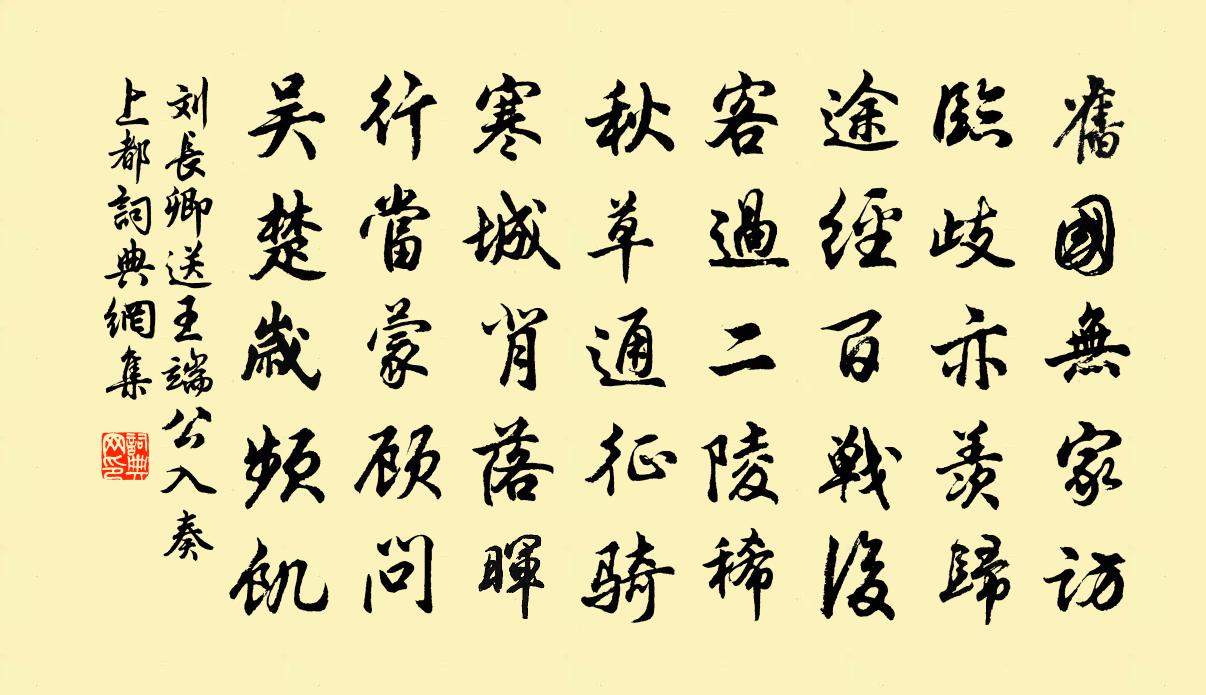 舊國無家訪
臨歧亦羨歸
途經百戰後
客過二陵稀
秋草通征騎
寒城背落暉
行當蒙顧問
吴楚歲頻飢
刘長卿送王端公入奏
上都詞典網集
詞典网印